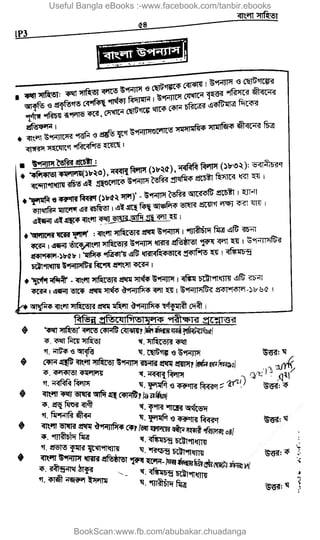 Useful Bangla eBooks :-www.facebook.com/tanbir.ebooks
বাংলা সাহিত্য
৫৪
[P3
বাংলা উপন্যাস
■ কথা সাহিত্য: কথা সাহিত্য বলতে উপন্যাস ও ছোটগল্পকে বোঝায়। উপন্যাস ও ছোটগল্পের
আকৃতি ও প্রকৃতিগত বেশকিছু পার্থক্য বিদ্যমান। উপন্যাস যেখানে বৃহত্তর পরিসরে জীবনের
পূর্ণাঙ্গ
প্রতিফলন।
♦ বাংলা উপন্যাসের পত্তন ও প্রবৃত্তি যুগে উপন্যাসগুলোতে সমসাময়িক সামাজিক জীবনের চিত্র
■ উপন্যাস তৈরির প্রচেষ্টা :
♦ 'কলিকাতা কমলালয়(১৮২৩), নববাবু বিলাস (১৮২৫), নববিবি বিলাস (১৮৩২): ভবানীচরণ
বন্দ্যোপাধ্যায় রচিত এই গ্রন্থগুলোতে উপন্যাস তৈরির প্রাথমিক প্রচেষ্টা লক্ষ্য করা যায়।
♦ 'ফুলমণি ও করুণার বিবরণ (১৮৫২ সাল)' - উপন্যাস তৈরির আরেকটি প্রচেষ্টা। হ্যানা
ক্যাথরিন ম্যলেন্স এর রচয়িতা।
♦ 'আলালের ঘরের দুলাল' : বাংলা সাহিত্যের প্রথম উপন্যাস। প্যারীচাঁদ মিত্র এটি রচনা
করেন। এজন্য তাঁকে বাংলা সাহিত্যের উপন্যাস ধারার প্রতিষ্ঠাতা পুরুষ বলা হয়। উপন্যাসটির
প্রকাশকাল-১৮৫৮। 'মাসিক পত্রিকা'য় এটি ধারাবাহিকভাবে প্রকাশিত হয়। বঙ্কিমচন্দ্র
চট্টোপাধ্যায় উপন্যাসটির বিশেষ প্রশংসা করেন।
♦ 'দুর্গেশ নন্দিনী' - বাংলা সাহিত্যের প্রথম সার্থক উপন্যাস। বঙ্কিম চন্দ্র চট্টোপাধ্যায় এটি রচনা
করেন। এজন্য তাঁকে প্রথম সার্থক ঔপন্যাসিক বলা হয়। উপন্যাসটির প্রকাশকাল-১৮৬৫।
♦ আধুনিক বাংলা সাহিত্যের প্রথম মহিলা ঔপন্যাসিক স্বর্ণকুমারী দেবী।
বিভিন্ন প্রতিযোগিতামূলক পরীক্ষার প্রশ্নোত্তর
♦ 'কথা সাহিত্য' বলতে কোনটি বোঝায়?
ক. কথা দিয়ে সাহিত্য খ. সাহিত্যের কথা
গ. নাটক ও আবৃত্তি ঘ. ছোটগল্প ও উপন্যাস উত্তর: ঘ
♦ কোন গ্রন্থটি বাংলা সাহিত্যে উপন্যাস রচনার প্রথম প্রয়াস?
ক. কলকাতা কমলালয় খ. নববাবু বিলাস
গ. নববিবি বিলাস ঘ. ফুলমণি ও করুণার বিবরণ উত্তর: ক
♦ বাংলা কথা সাহিত্যের আদি গ্রন্থ কোনটি?
খ. কৃপার শাস্ত্রের অর্থভেদ
ঘ. ফুলমণি ও করুণার বিবরণ উত্তর: ঘ
♦ বাংলা ভাষার প্রথম ঔপন্যাসিক কে?
ক. প্যারীচাঁদ মিত্র খ. বঙ্কিমচন্দ্র চট্টোপাধ্যায়
গ. প্রভাত কুমার মুখোপাধ্যায় ঘ. শরৎচন্দ্র চট্টোপাধ্যায় উত্তর: ক
♦ বাংলা উপন্যাস ধারার প্রতিষ্ঠাতা পুরুষ হলেন-
ক. রবীন্দ্রনাথ ঠাকুর খ. বঙ্কিমচন্দ্র চট্টোপাধ্যায়
গ. কাজী নজরুল ইসলাম ঘ. প্যারীচাঁদ মিত্র উত্তর: ঘ
BookScan:www.fb.com/abubakar.chuadanga